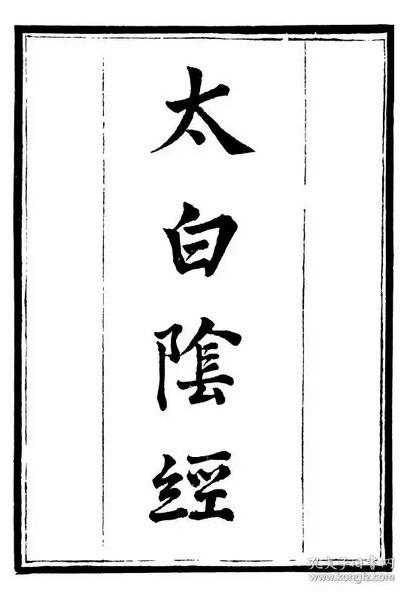 太白陰經
孔夫子旧书网
www.kongfz.com